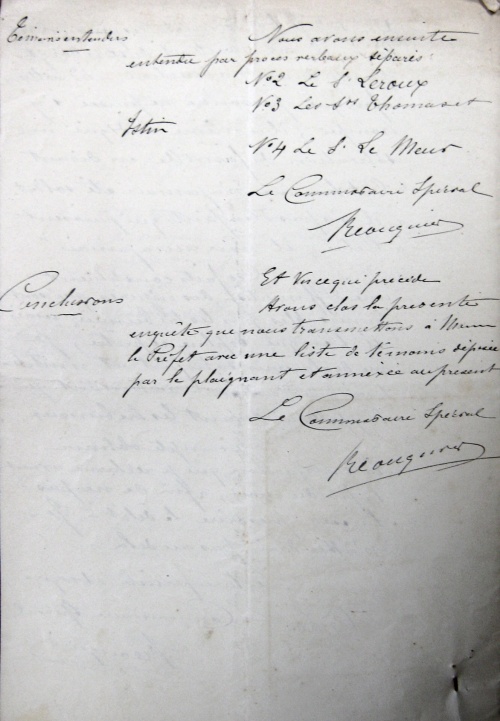 Témoins entendus
Nous avons ensuite
entendu par proces verbaux séparés:
No2 Le Sr Leroux
No3 Les Srs Thomas et
Istin
No4 Le Sr Le Meur
Le Commissaire Spécial
Conclusions
Et vu ce qui précède
Avons clos la présente
enquête que nous transmettons à
le Préfet avec une liste de témoins déposée
par le plaignant et annexée au présent
Le Commissaire Spécial